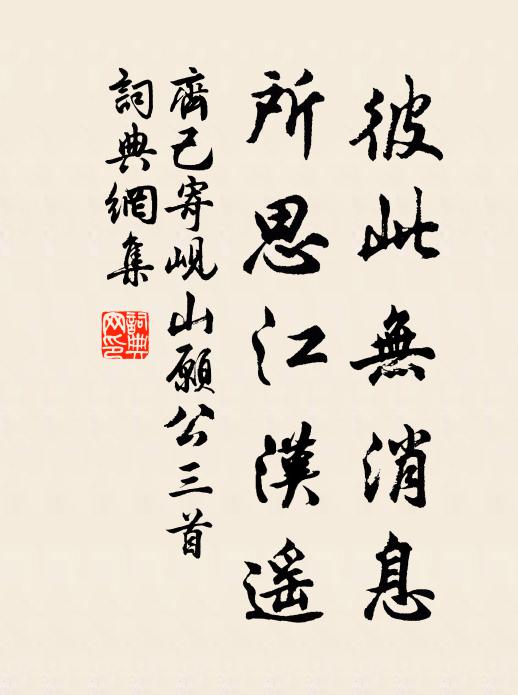 彼此無消息
所思江漢遥
齊己寄峴山願公三首
詞典網集
詞典網印